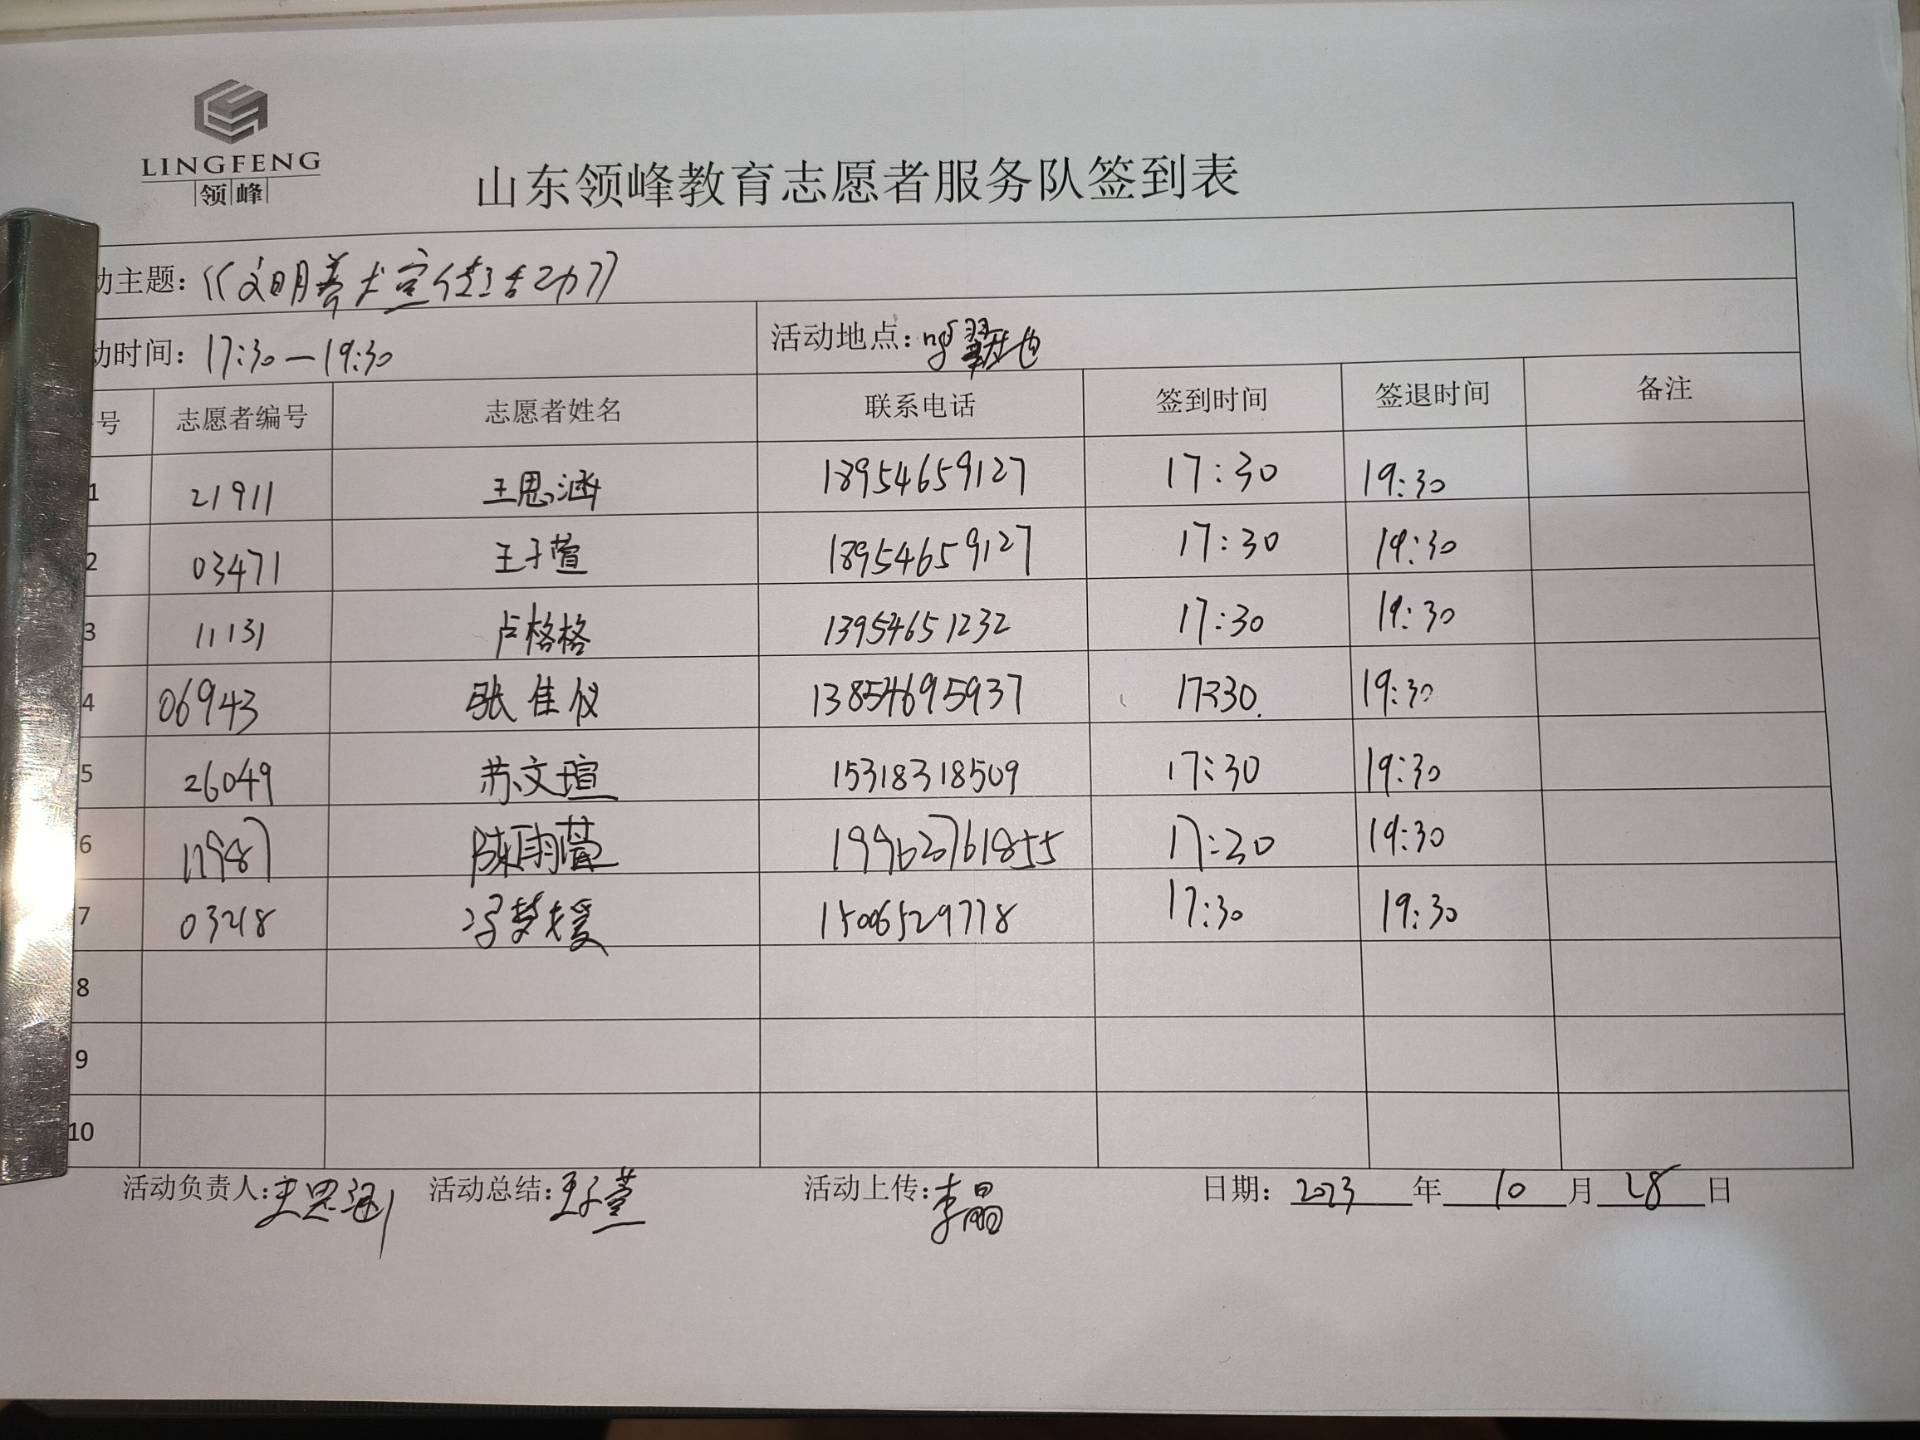 LINGFENG
领峰
山东领峰教育志愿者服务队签到表
动主题：《文明养犬宣传活动》
动时间：17:30—19:30 活动地点：
号 志愿者编号 志愿者姓名 联系电话 签到时间 签退时间 备注
1 21911 王思涵 18954659127 17:30 19:30
2 03471 王子萱 18954659127 17:30 19:30
3 11131 卢格格 13954651232 17:30 19:30
4 06943 张佳仪 13854695937 17:30. 19:30
5 26049 苏文瑄 15318318509 17:30 19:30
6 陈雨萱 17:30 19:30
7 03218 冯梦媛 15006529778 17:30 19:30
8
9
10
活动负责人：王思涵 活动总结：王子萱 活动上传：李晶 日期：2023年10月28日